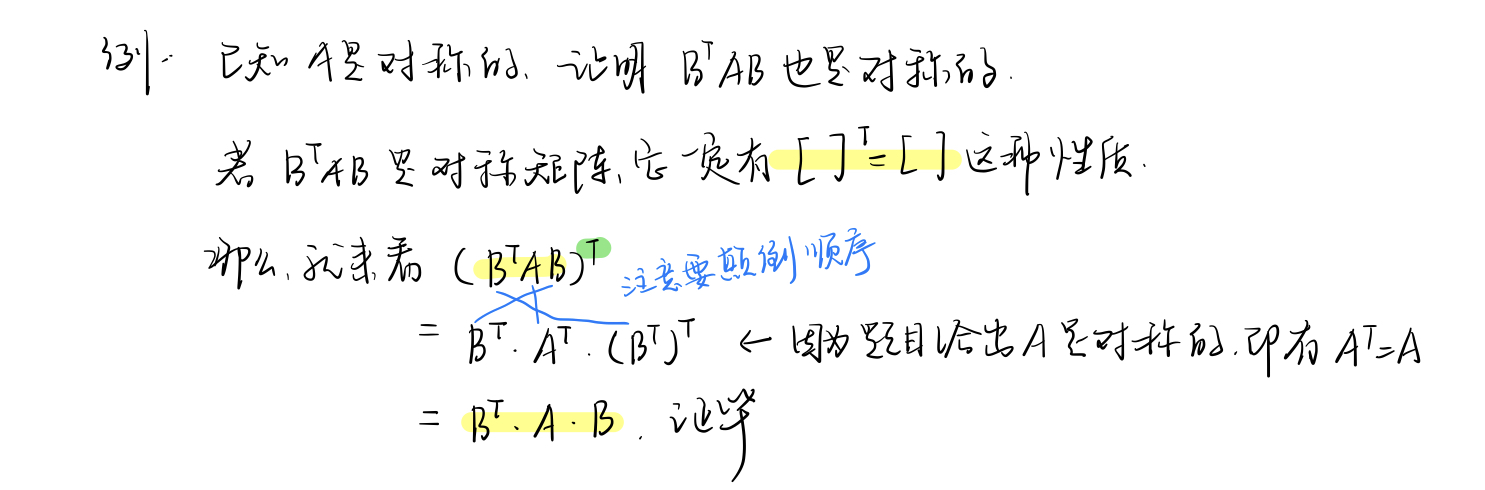 例. 已知 A是对称的. 证明 BᵀAB 也是对称的.
若 BᵀAB 是对称矩阵, 它一定有 [ ]ᵀ=[ ] 这种性质.
那么, 就来看 (BᵀAB)ᵀ 注意要颠倒顺序
= Bᵀ · Aᵀ · (Bᵀ)ᵀ ← 因为题目给出A是对称的. 即有 Aᵀ=A
= Bᵀ · A · B . 证毕